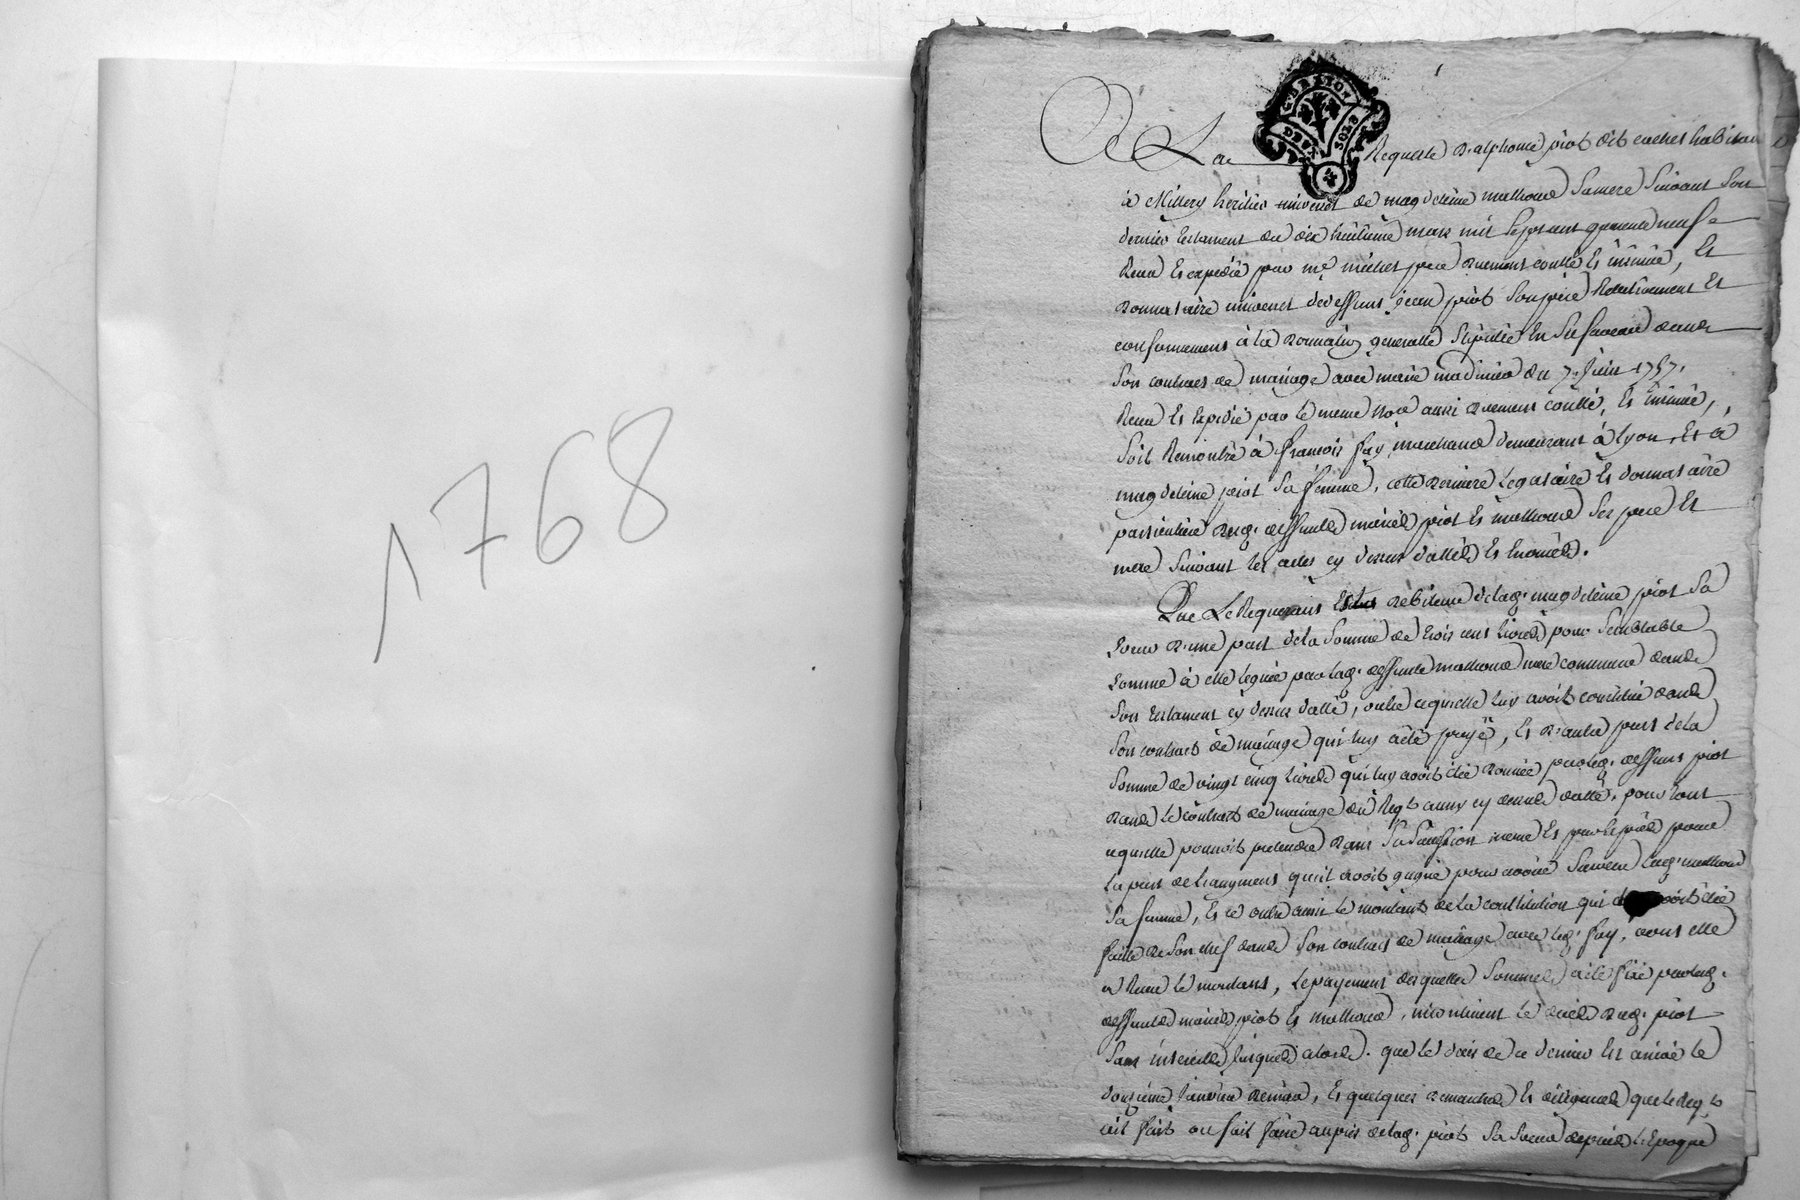 1768
GENERALITE LYON
DEUX SOLS
4
De La Requeste d'alphonce piot dit cachet habitant
à Millery heritier universel de magdeleine mathoud sa mere suivant son
dernier testament du dix huitieme mars mil sept cent quarente neuf
Receu et expedié par me pere duement controllé et insinué, et
donnataire universel de deffunt jean piot son pere relativement et
conformement à la donnation generalle stipulée en sa faveur dans
son contract de mariage avec marie du 7. Juin 1757.
Receu et expedié par le meme no.re aussi duement controllé, et insinué,
soit remontré à françois fay marchand demeurant à Lyon, et à
magdeleine piot sa femme, cette derniere legataire et donnataire
particuliere desd. deffunts mariés piot et mathoud ses pere et
mere suivant les actes cy dessus dattés et enoncés.
Que Le Requerant est debiteur de lad. magdeleine piot sa
soeur d'une part de la somme de trois cent livres pour semblable
somme à elle leguée par lad. deffunte mathoud mere commune dans
son testament cy dessus datté, outre ce qu'elle luy avoit constitué dans
son contract de mariage qui luy a été payé, et d'autre part de la
somme de vingt cinq livres qui luy avoit été donnée par led. deffunt piot
dans le contract de mariage du Reqt aussy cy dessus datté, pour tout
ce qu'elle pouvoit pretendre dans sa succession meme et par exprès pour
la part de l'augment qu'il avoit gagné pour avoir survecu lad. mathoud
sa femme, et ce outre aussi le montant de la constitution qui avoit été
faitte de son chef dans son contract de mariage avec led. fay, dont elle
a receu le montant, le payement desquelles sommes a été fixé par lesd.
deffunts mariés piot et mathoud, incontinent le decès dud. piot
sans interets jusques alors. que le decès de ce dernier est arrivé le
douzieme janvier dernier, et quelques demarches et diligences que le Reqt
ait fait ou fait faire auprès de lad. piot sa soeur depuis l'epoque